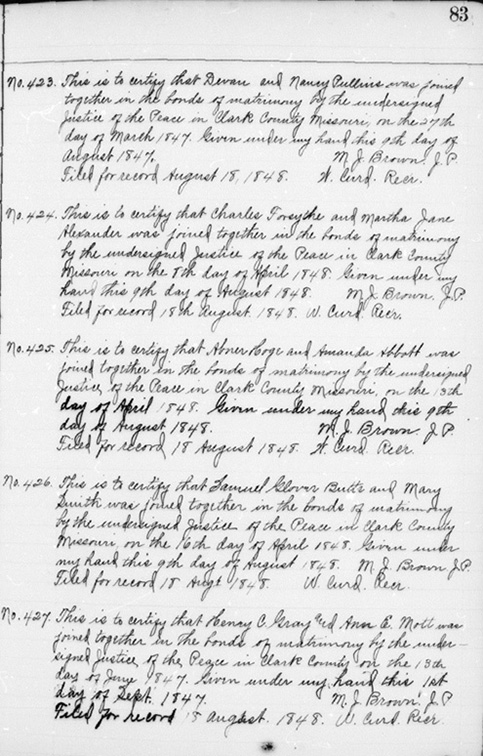 83
No. 423. This is to certify that Devan and Nancy Pullins was joined
together in the bonds of matrimony by the undersigned
Justice of the Peace in Clark County Missouri, on the 27th
day of March 1847. Given under my hand this 9th day of
August 1847. M. J. Brown J. P.
Filed for record August 18, 1848. W. Curd. Recr.
No. 424. This is to certify that Charles Forsythe and Martha Jane
Alexander was joined together in the bonds of matrimony
by the undersigned Justice of the Peace in Clark County
Missouri on the 8th day of April 1848. Given under my
hand this 9th day of August 1848. M. J. Brown. J. P.
Filed for record 18th August. 1848. W. Curd Recr.
No. 425. This is to certify that Abner Hoge and Amanda Abbott was
joined together in the bonds of matrimony by the undersigned
Justice, of the Peace in Clark County Missouri, on the 13th
day of April 1848. Given under my hand this 9th
day of August 1848. M. J. Brown. J. P.
Filed for record 18 August 1848. W. Curd Recr.
No. 426. This is to certify that Samuel Glover Butts and Mary
Smith was joined together in the bonds of matrimony
by the undersigned Justice of the Peace in Clark County
Missouri, on the 16th day of April 1848. Given under
my hand this 9th day of August 1848. M. J. Brown J. P.
Filed for record 18 Augt 1848. W. Curd. Recr.
No. 427. This is to certify that Henry C. Gray and Ann E. Mott was
joined together in the bonds of matrimony by the under-
signed Justice of the Peace in Clark County on the 13th
day of June 1847. Given under my hand this 1st
day of Sept. 1847. M. J. Brown. J. P.
Filed for record 18 August. 1848. W. Curd Recr.